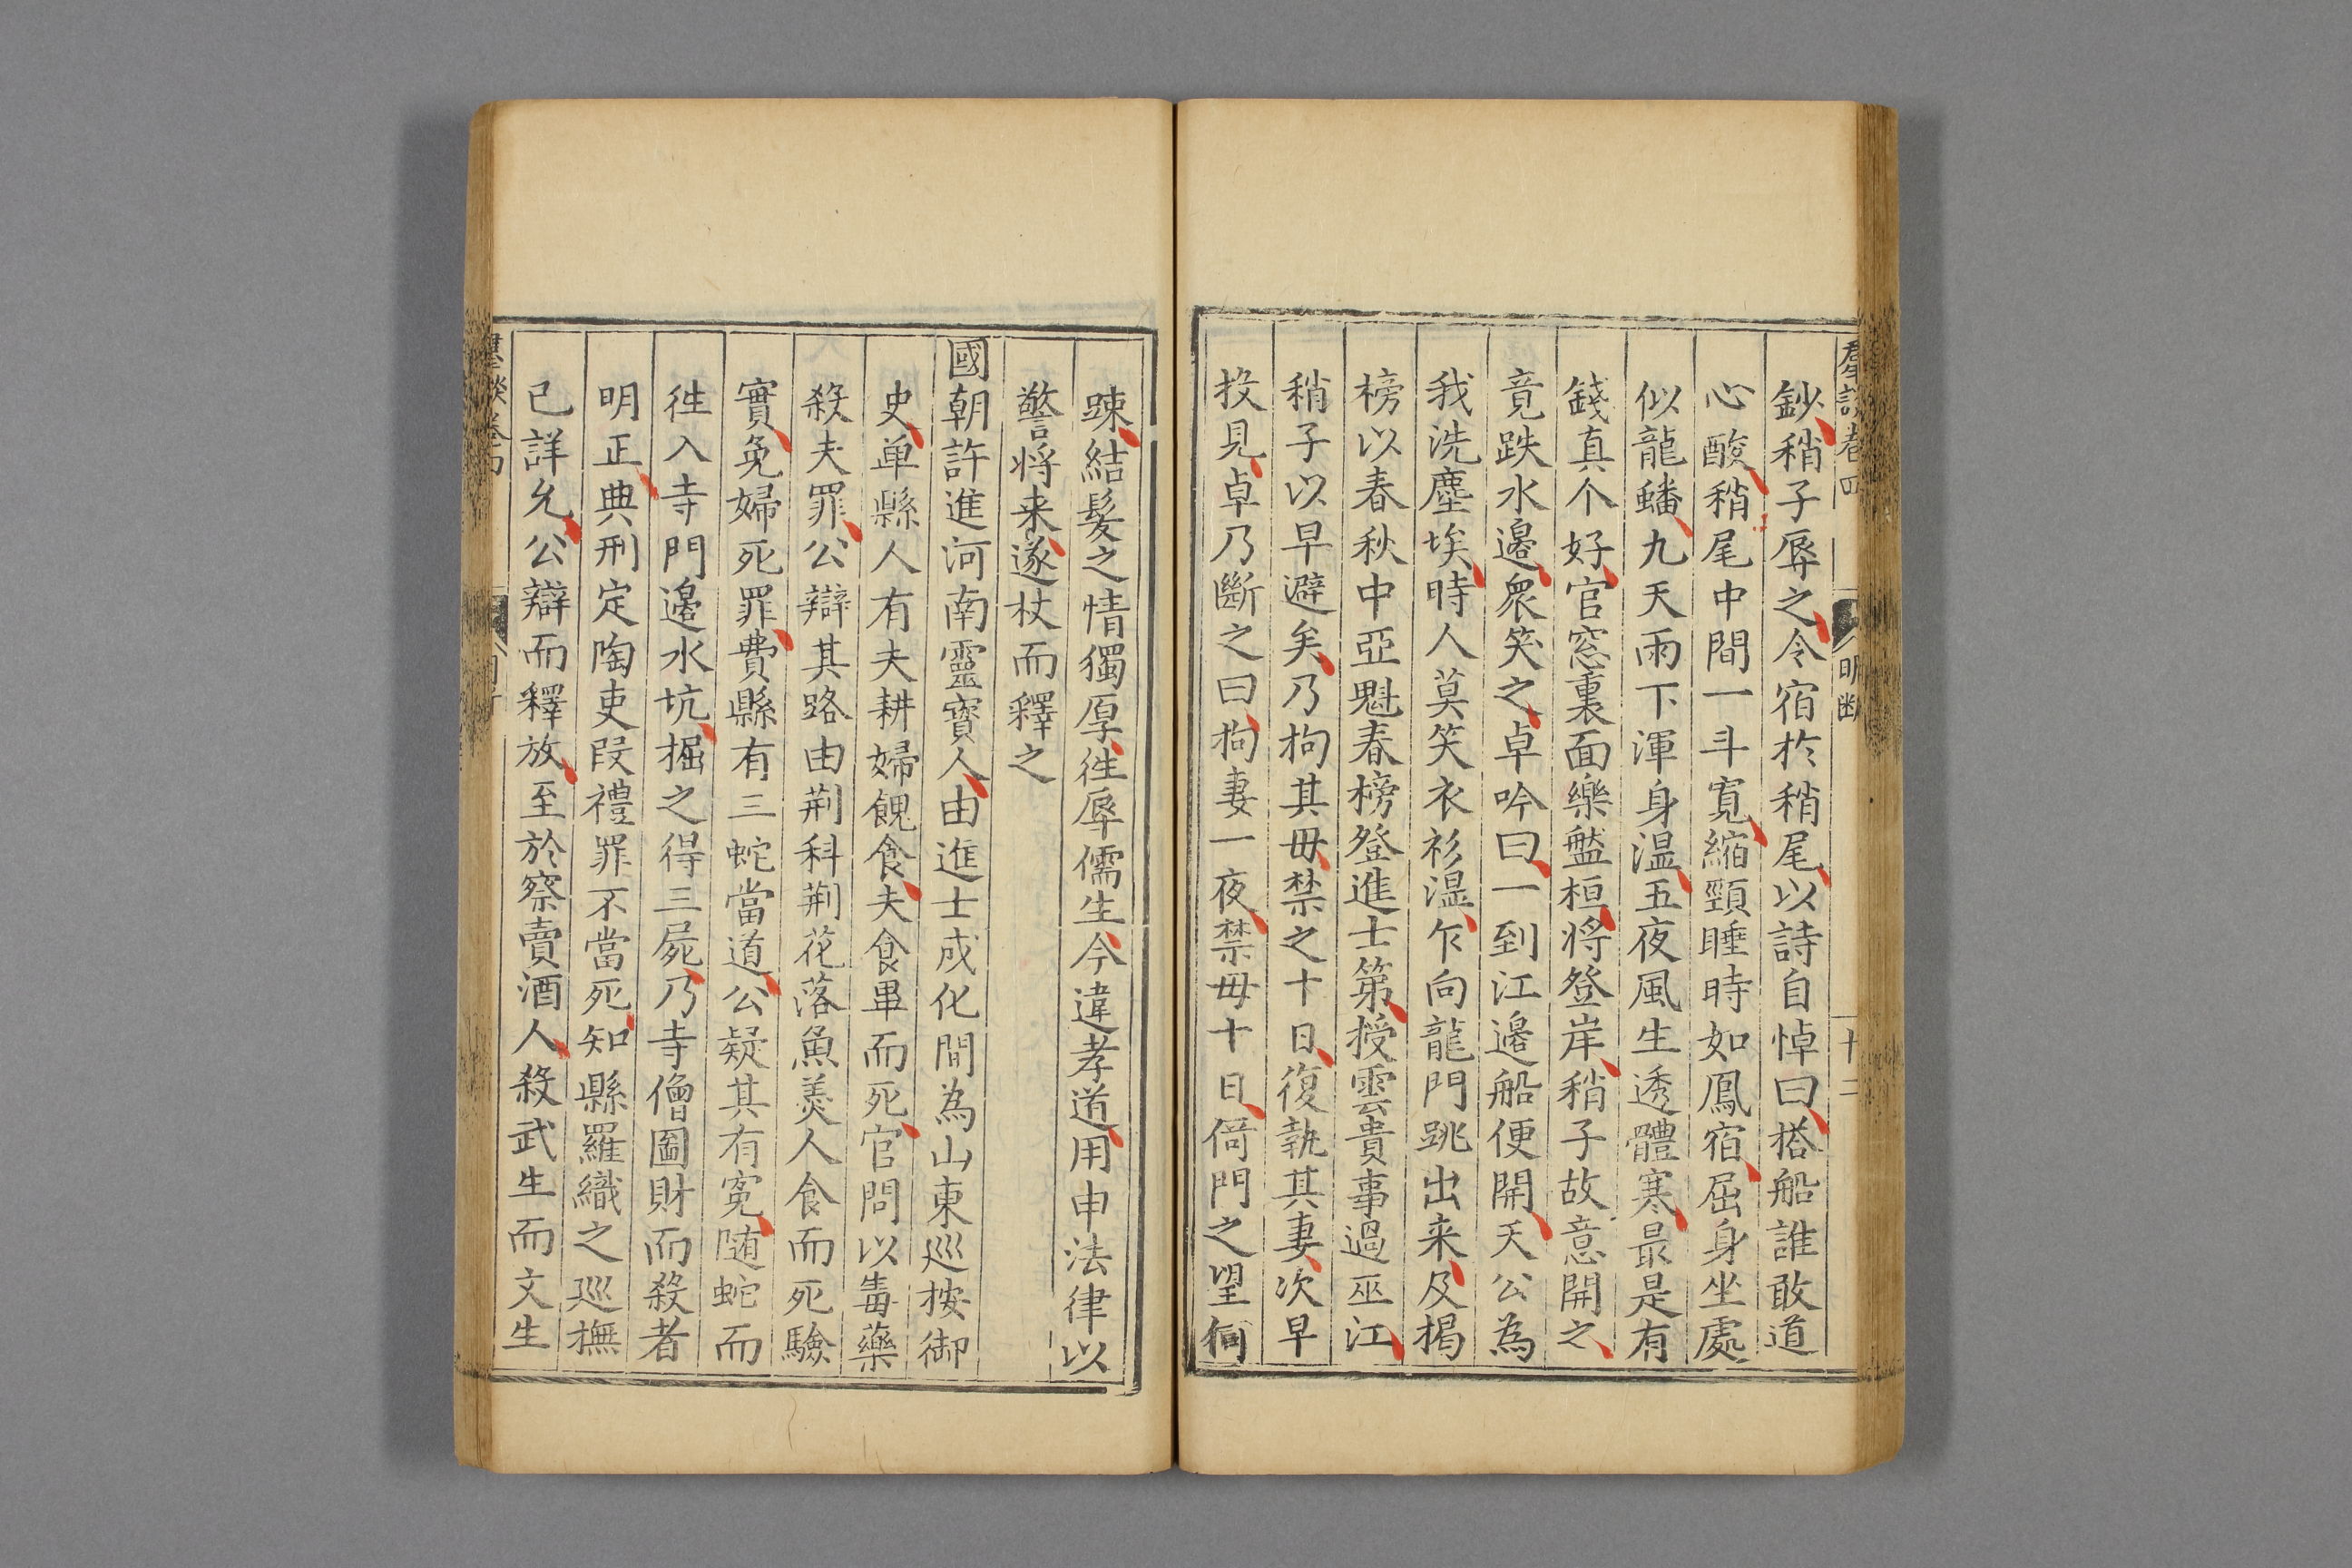 鈔稍子辱之令宿於稍尾以詩自悼曰搭船誰敢道
心酸稍尾中間一斗寬縮頸睡時如鳳宿屈身坐處
似龍蟠九天雨下渾身温五夜風生透體寒最是有
錢真个好官窓裏面樂盤桓将登岸稍子故意開之
竟跌水邉衆笑之卓吟曰一到江邉船便開天公為
我洗塵埃時人莫笑衣衫濕乍向龍門跳出来及揭
榜以春秋中亞魁春榜登進士第授雲貴事過巫江
稍子以早避矣乃拘其毋禁之十日復執其妻次早
投見卓乃斷之曰拘妻一夜禁毋十日倚門之望徊
踈結髮之情獨厚徃辱儒生今違孝道用申法律以
警将来遂杖而釋之
國朝許進河南靈寳人由進士成化間為山東巡按御
史单縣人有夫耕婦餽食夫食畢而死官問以毒藥
殺夫罪公辯其路由荆科荆花落魚羮人食而死驗
實免婦死罪費縣有三蛇當道公疑其有寃随蛇而
徃入寺門邉水坑掘之得三屍乃寺僧圖財而殺者
明正典刑定陶吏段禮罪不當死知縣羅織之巡撫
已詳允公辯而釋放至於察賣酒人殺武生而文生
羣談卷四
明断
十二